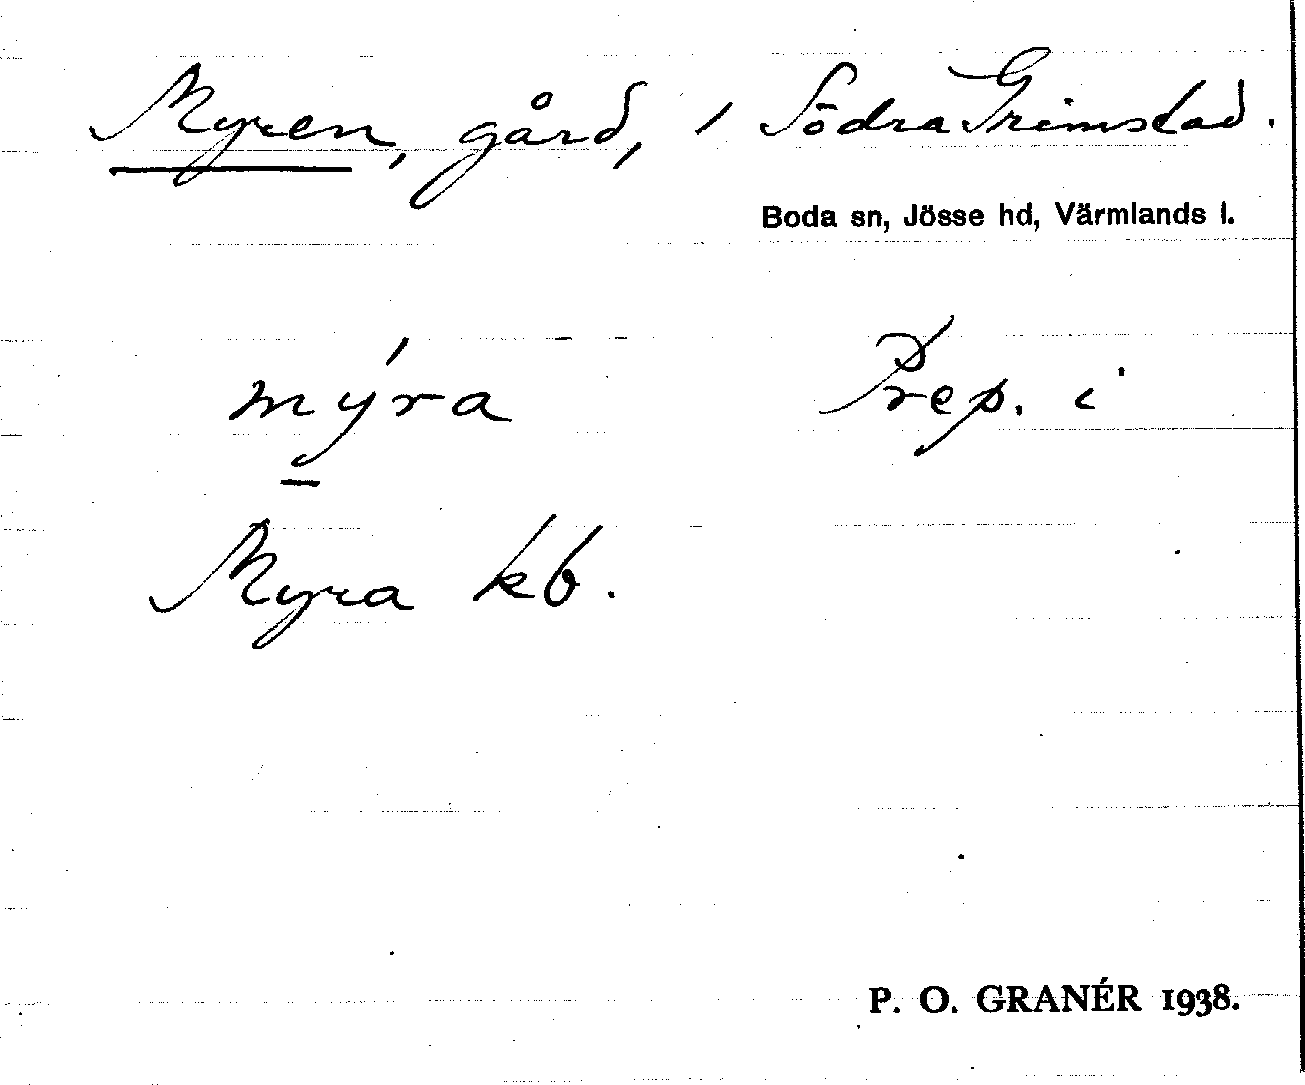 Myren, gård, i Södra Grimstad.
Boda sn, Jösse hd, Värmlands l.
mýra Prep. i
Myra kb.
P. O. GRANÉR 1938.